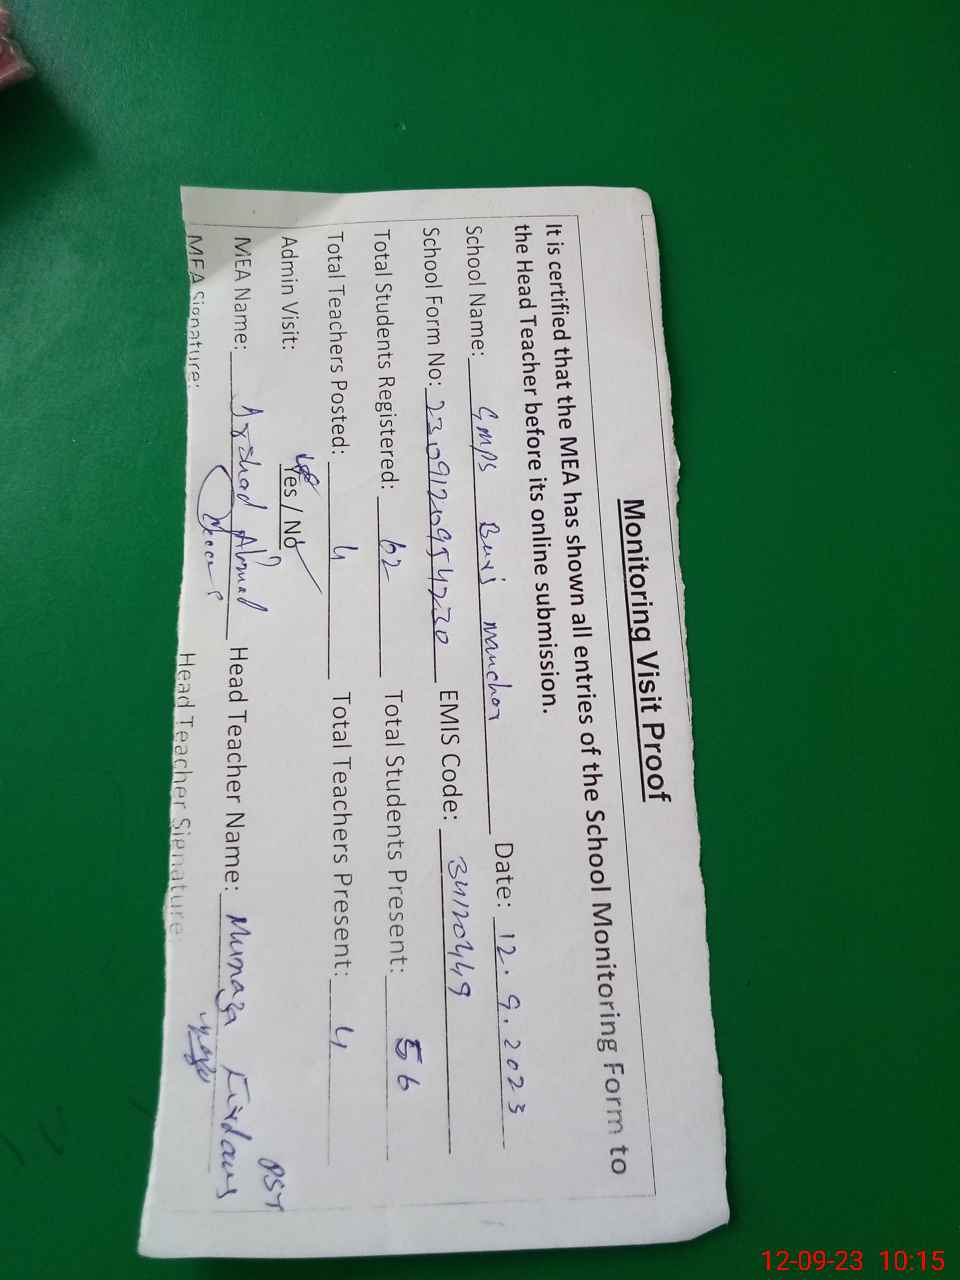 Monitoring Visit Proof
It is certified that the MEA has shown all entries of the School Monitoring Form to
the Head Teacher before its online submission.
School Name: GMPS Burj manchar Date: 12.9.2023
School Form No: 2309120954230 EMIS Code: 34120449
Total Students Registered: 62 Total Students Present: 56
Total Teachers Posted: 4 Total Teachers Present: 4
Admin Visit: Yes / No
PST
MEA Name: Arshad Ahmad Head Teacher Name: Mumaza Firdaus
MEA Signature: Head Teacher Signature:
12-09-23 10:15